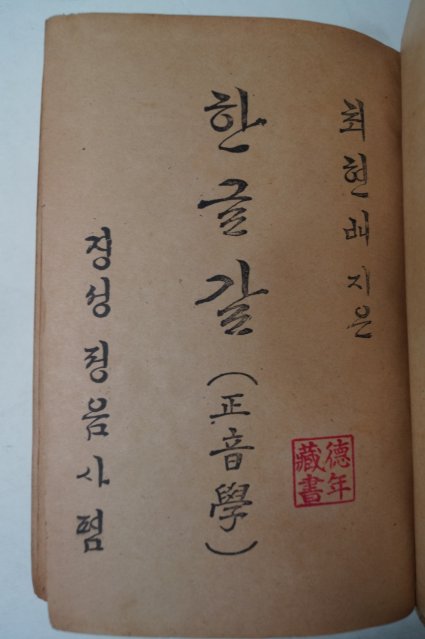 최현배 지은
한글갈(正音學)
경성 정음사 폄
德年
藏書